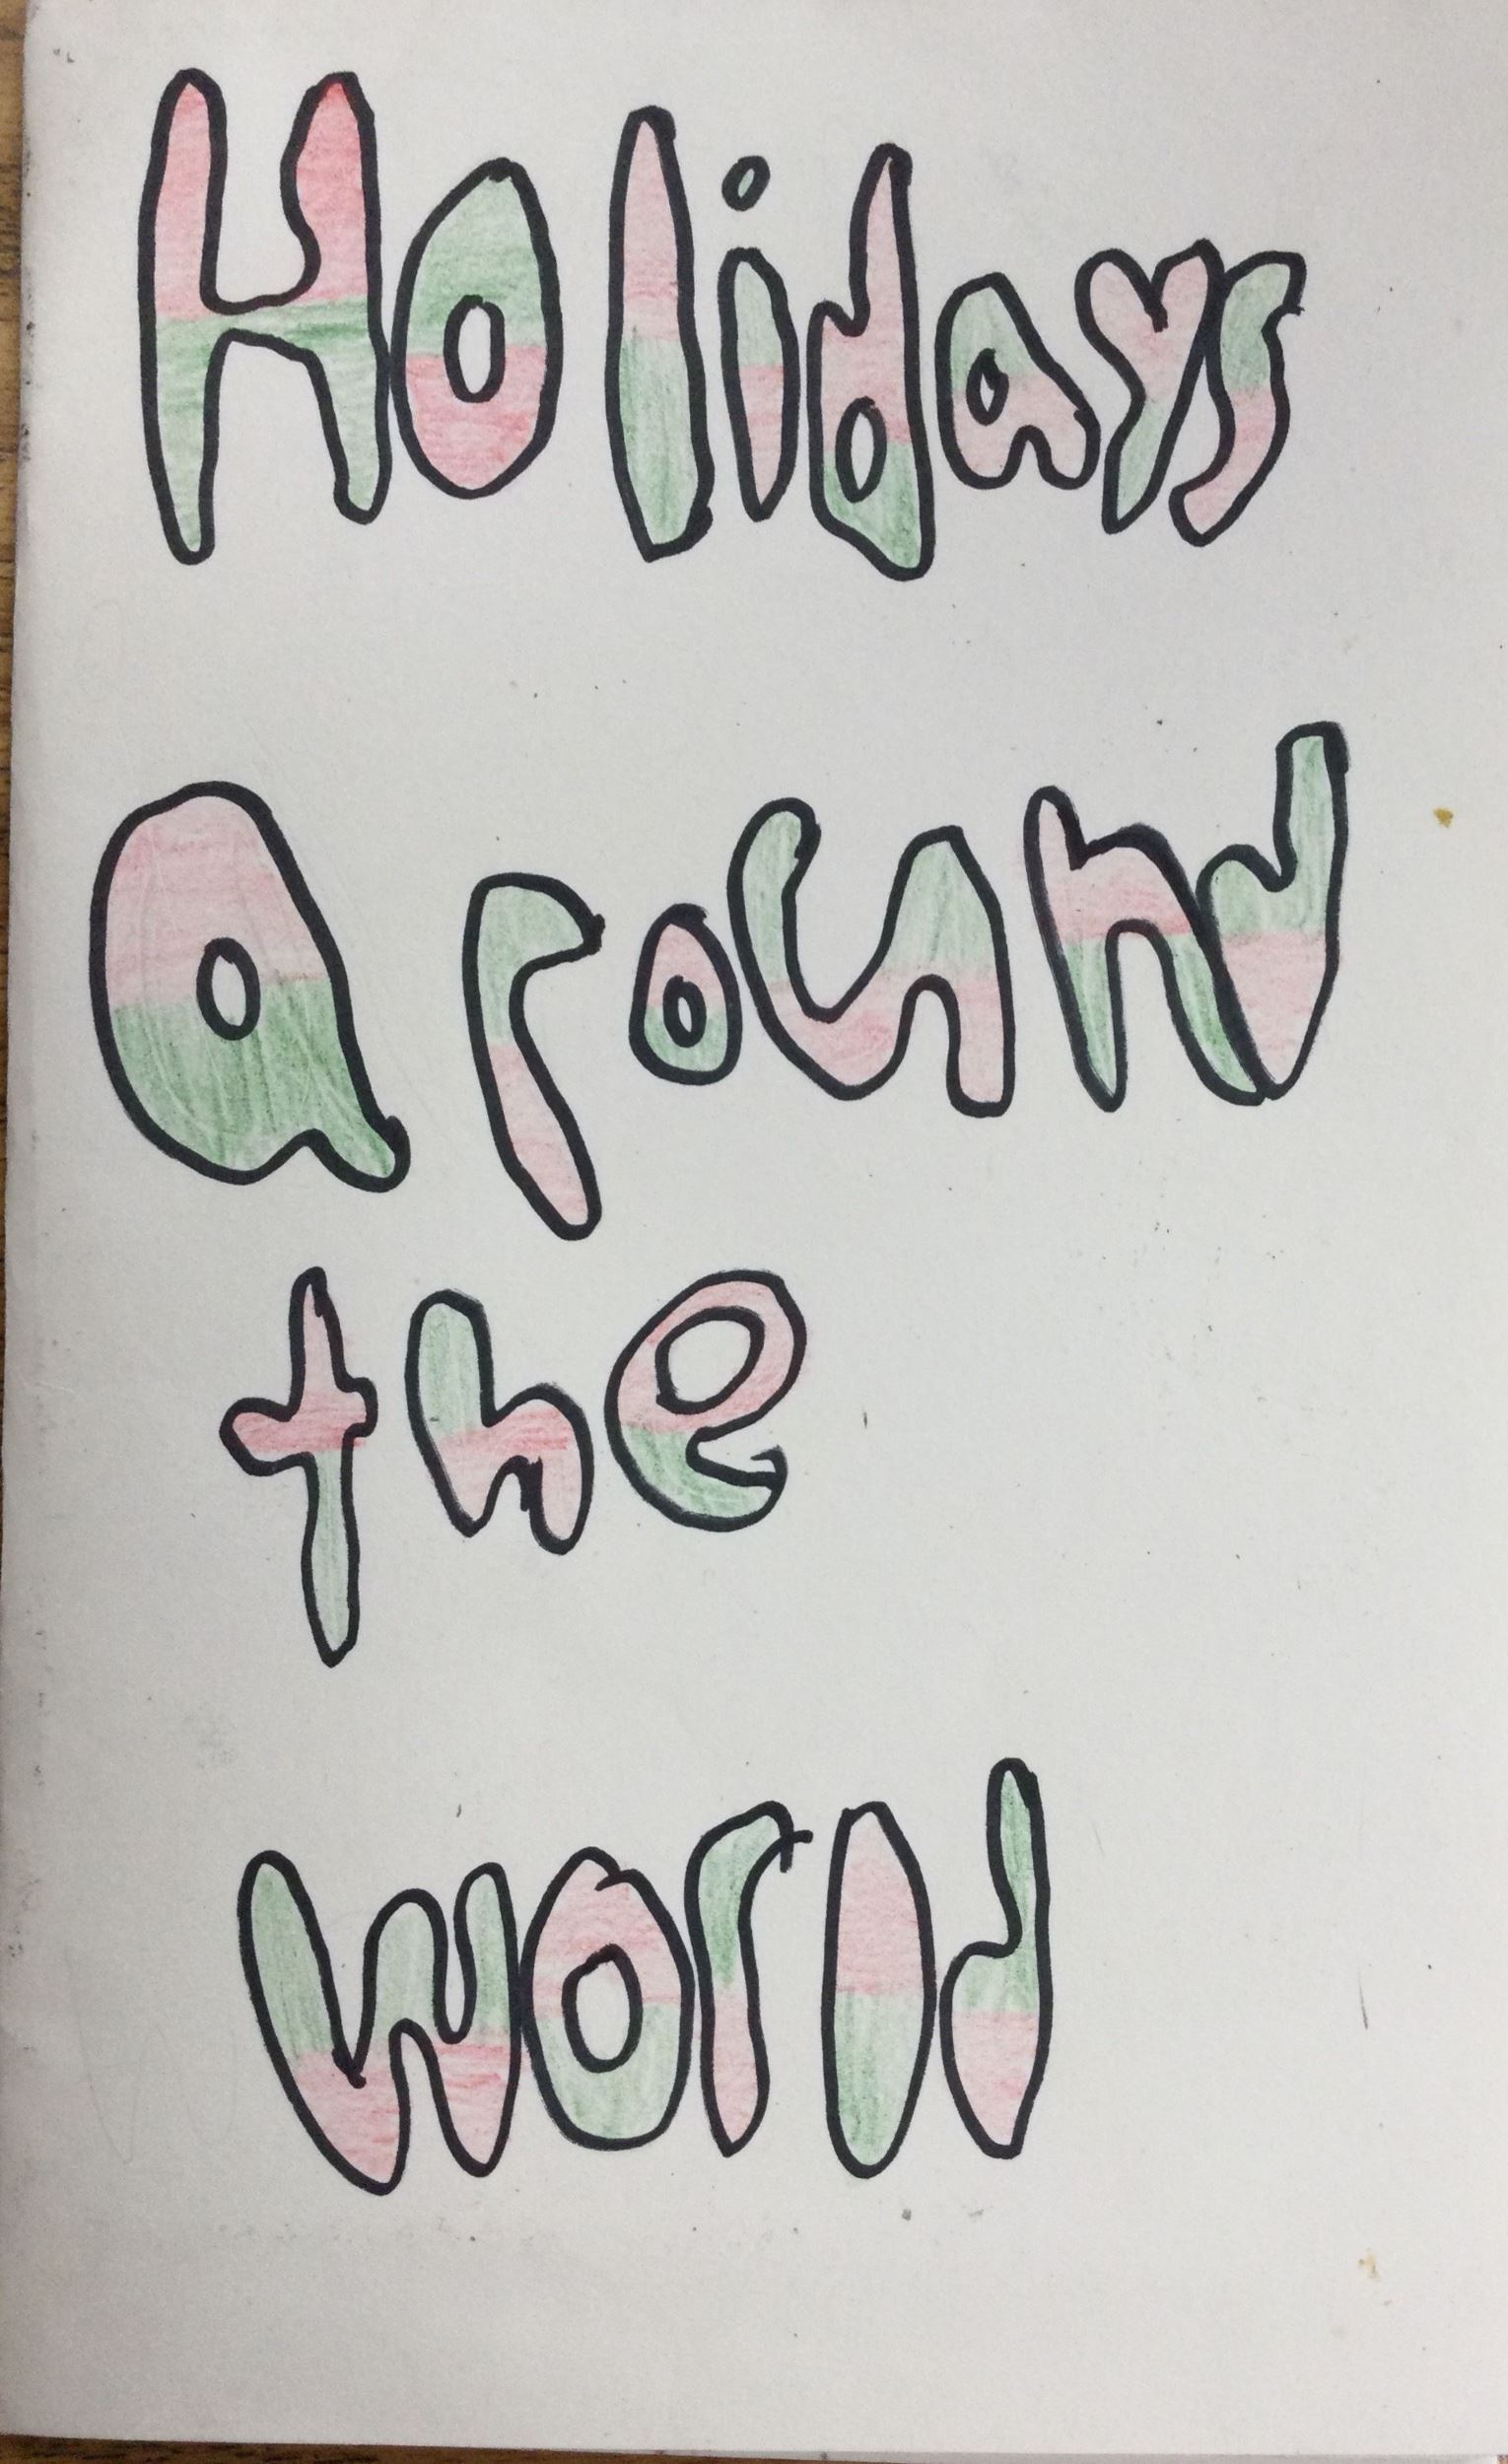 Holidays
Around
the
world